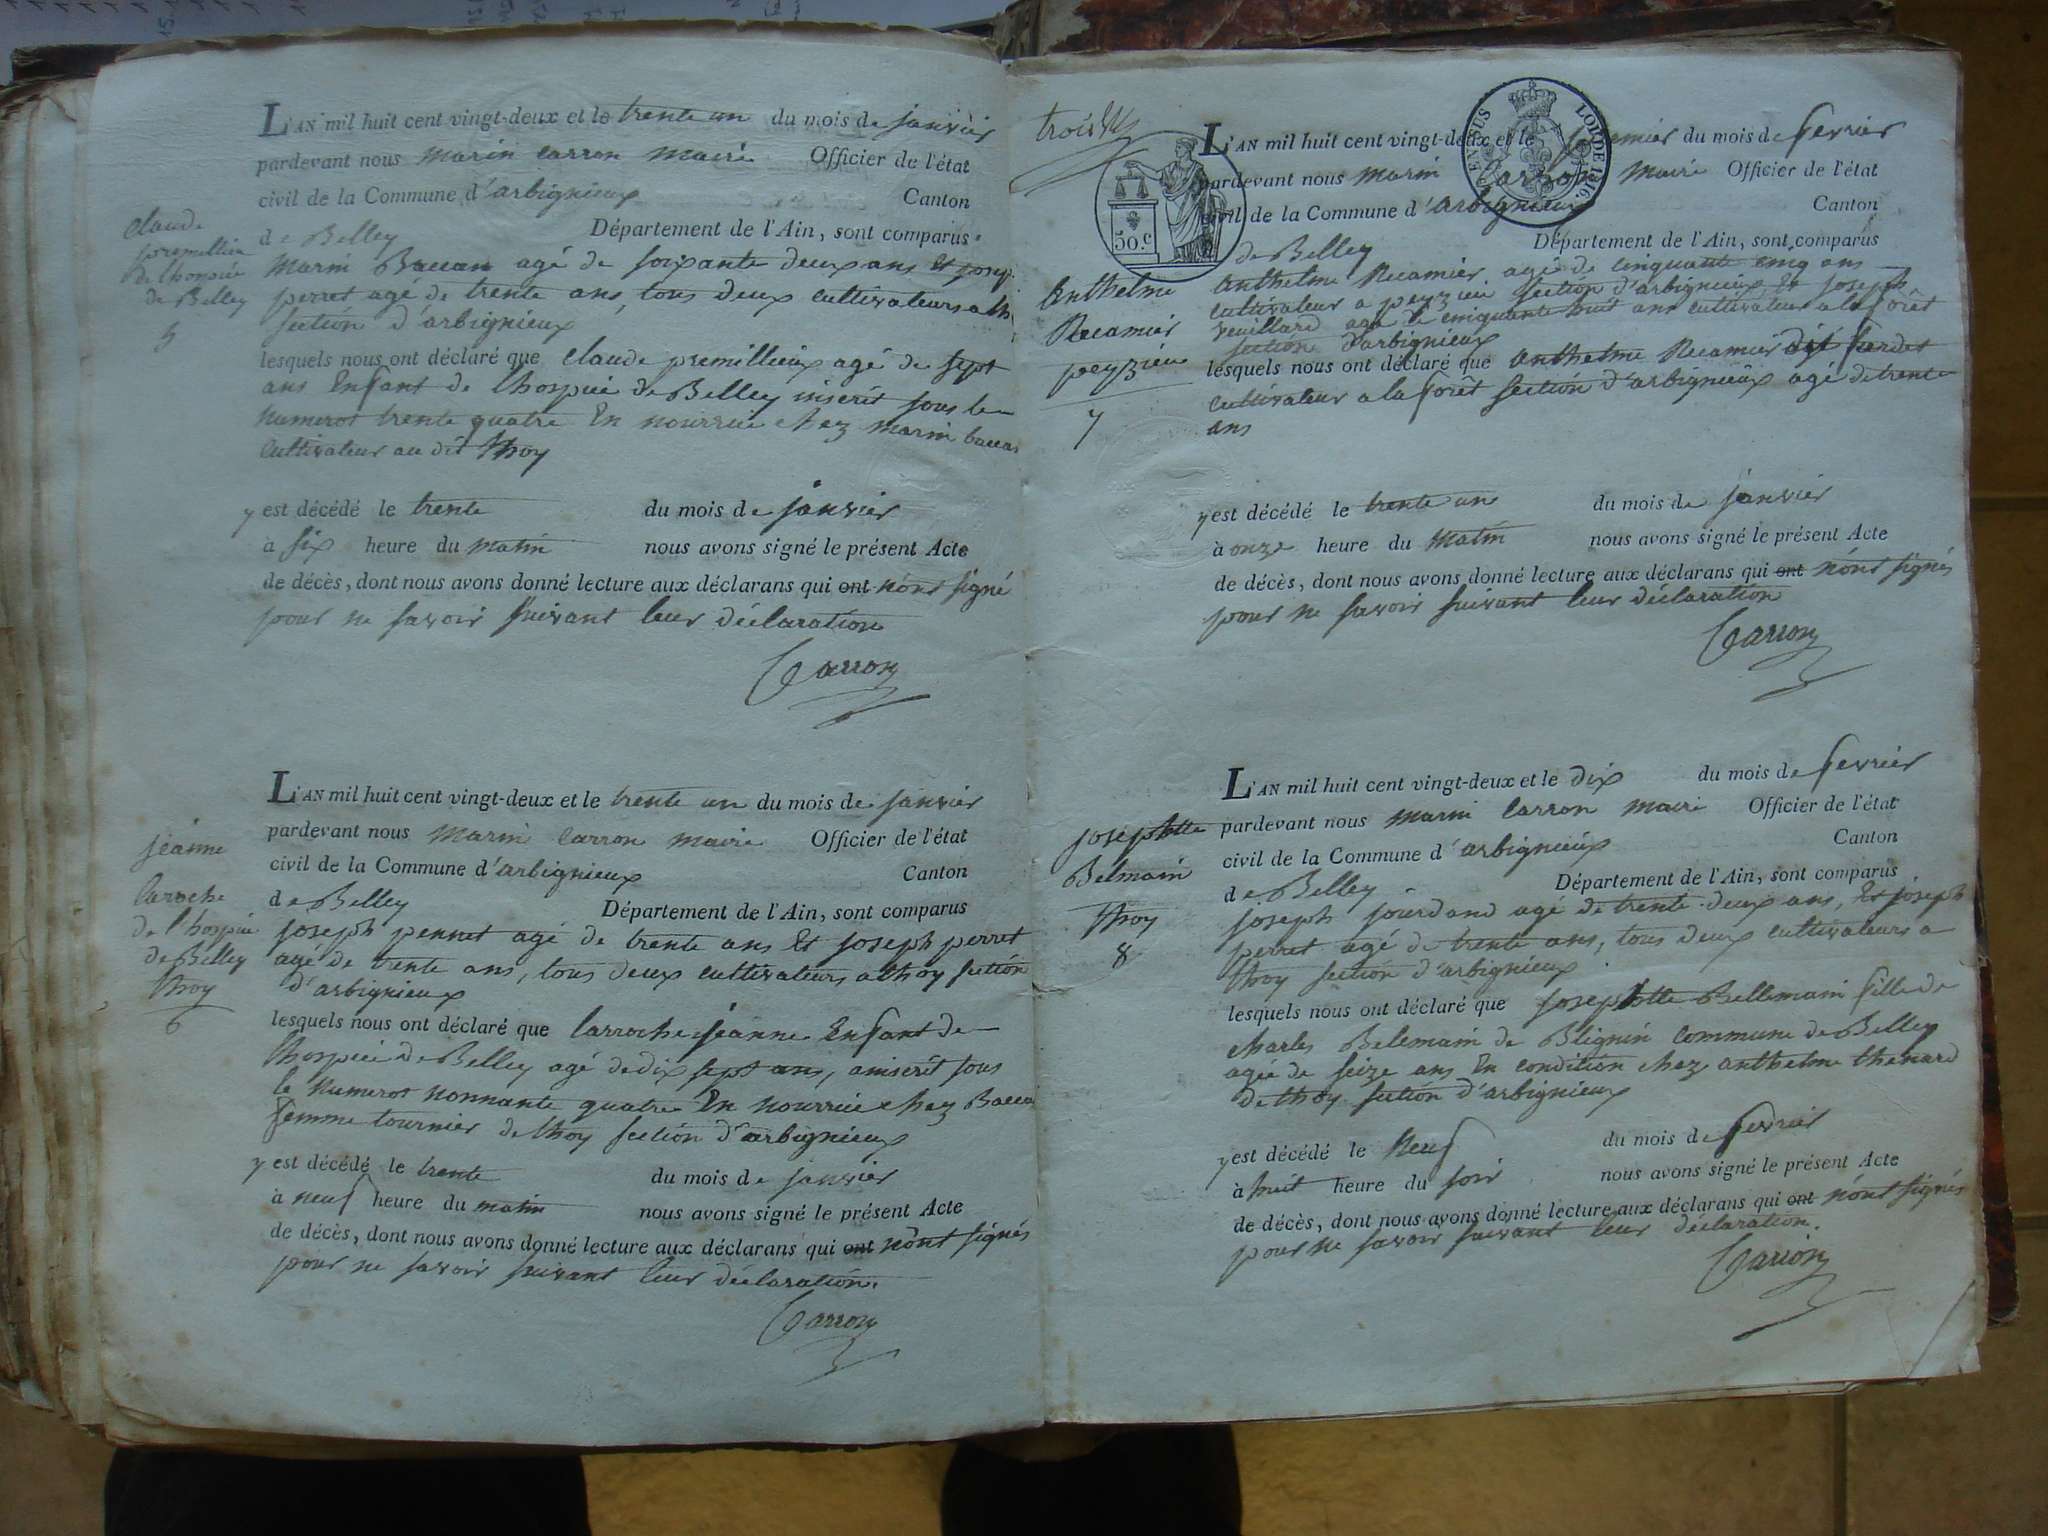 L'AN mil huit cent vingt-deux et le trente un du mois de janvier
pardevant nous marin Carron maire Officier de l'état
civil de la Commune d'arbignieux Canton
de Belley Département de l'Ain, sont comparus
marin Baccan agé de soixante deux ans Et josep
perret agé de trente ans, tous deux cultivateurs a th
section d'arbignieux
lesquels nous ont déclaré que claude premillieux agé de sept
ans Enfant de lhospice de Belley inscrit sous le
numeros trente quatre En nourrice chez marin bacca
Cultivateur au dit thoy
y est décédé le trente du mois de janvier
à six heure du matin nous avons signé le présent Acte
de décès, dont nous avons donné lecture aux déclarans qui ont n'ont signé
pour ne savoir suivant leur déclaration
Carron
claude
premillieu
de lhospice
de Belley
5
L'AN mil huit cent vingt-deux et le trente un du mois de janvier
pardevant nous marin Carron maire Officier de l'état
civil de la Commune d'arbignieux Canton
de Belley Département de l'Ain, sont comparus
joseph pennet agé de trente ans Et joseph perret
agé de trente ans, tous deux cultivateurs a thoy section
d'arbignieux
lesquels nous ont déclaré que larroche jéanne Enfant de
lhospice de Belley agé de dix sept ans, inscrit sous
le numeros nonnante quatre En nourrice chez Bacca
femme tournier de thoy section d'arbignieux
y est décédé le trente du mois de janvier
à neuf heure du matin nous avons signé le présent Acte
de décès, dont nous avons donné lecture aux déclarans qui ont n'ont signés
pour ne savoir suivant leur déclaration.
Carron
jéanne
laroche
de l'hospice
de Belley
thoy
6
trois
50.c
LOI DE 1816.
L'AN mil huit cent vingt-deux et le premier du mois de fevrier
pardevant nous marin Carron maire Officier de l'état
civil de la Commune d'arbignieux Canton
de Belley Département de l'Ain, sont comparus
anthelme Recamier agé de cinquante cinq ans
cultivateur a peyzieu section d'arbignieux, Et joseph
veuillard agé de cinquante huit ans cultivateur a la forêt
section d'arbignieux
lesquels nous ont déclaré que anthelme Recamier dit
cultivateur a la foret section d'arbignieux agé de trente
ans
y est décédé le trente un du mois de janvier
à onze heure du matin nous avons signé le présent Acte
de décès, dont nous avons donné lecture aux déclarans qui ont n'ont signés
pour ne savoir suivant leur déclaration
Carron
Anthelme
Recamier
peyzieu
7
L'AN mil huit cent vingt-deux et le dix du mois de fevrier
pardevant nous marin Carron maire Officier de l'état
civil de la Commune d'arbignieux Canton
de Belley Département de l'Ain, sont comparus
joseph jourdand agé de trente deux ans, Et joseph
perret agé de trente ans, tous deux cultivateurs a
thoy section d'arbignieux
lesquels nous ont déclaré que josephtte Bellemain fille de
charles Belemain de Blignin commune de Belley
agée de seize ans En condition chez anthelme thenard
de thoy section d'arbignieux
y est décédé le neuf du mois de fevrier
à huit heure du soir nous avons signé le présent Acte
de décès, dont nous avons donné lecture aux déclarans qui ont n'ont signés
pour ne savoir suivant leur déclaration.
Carron
josephtte
Belmain
thoy
8